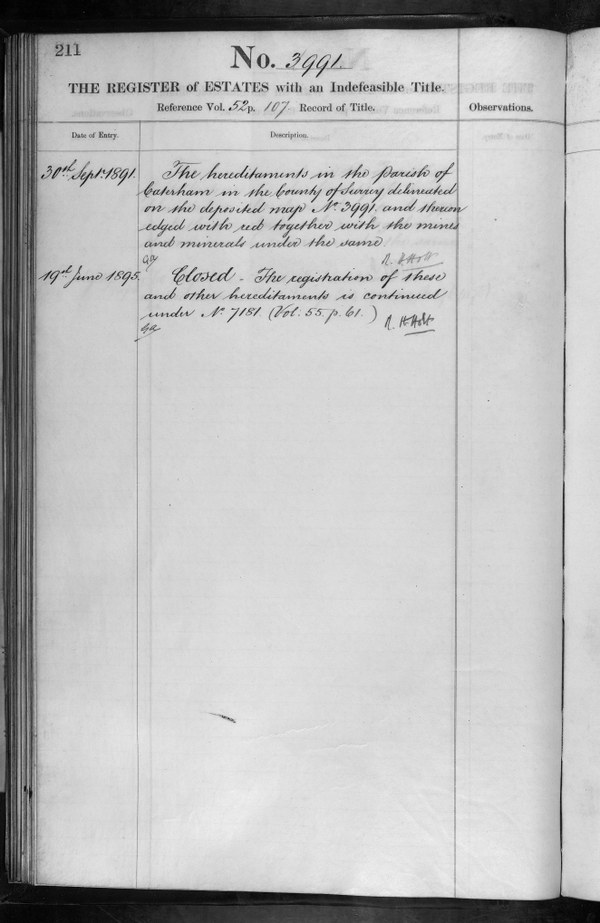 211
No. 3991.
THE REGISTER of ESTATES with an Indefeasible Title.
Reference Vol. 52 p. 107 Record of Title.
Observations.
Date of Entry.
Description.
30th Sept. 1891.
The hereditaments in the Parish of
Caterham in the County of Surrey delineated
on the deposited map No. 3991. and thereon
edged with red together with the mines
and minerals under the same
R. H. Holt
19th June 1895.
Closed - The registration of these
and other hereditaments is continued
under No. 7181. (Vol. 55. p. 61. )
R. H. Holt